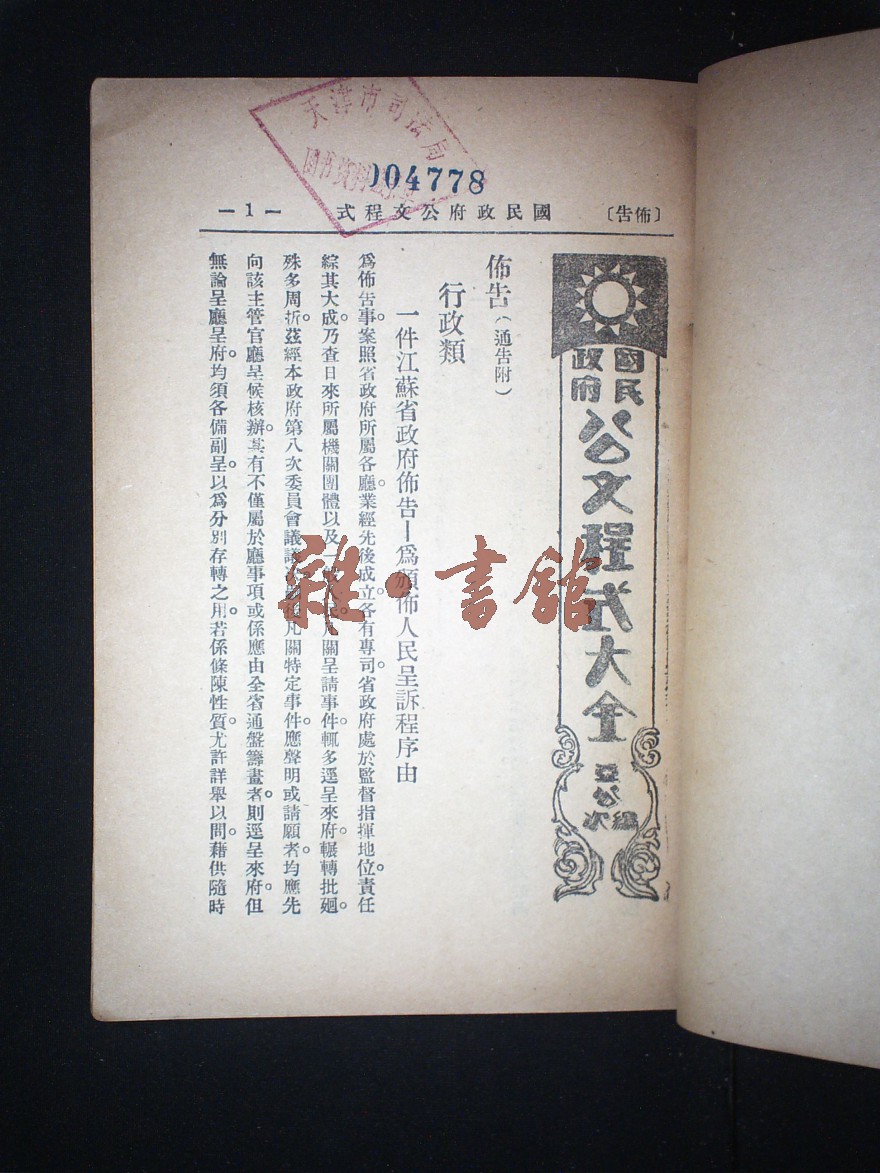 天津市司法局
004778
〔佈告〕 國民政府公文程式 —1—
國民政府
公文程式大全
佈告（通告附）
行政類
一件江蘇省政府佈告—爲頒佈人民呈訴程序由
爲佈告事。案照省政府所屬各廳。業經先後成立。各有專司。省政府處於監督指揮地位。責任
綜其大成。乃查日來所屬機關團體以及一 關呈請事件。輒多逕呈來府。輾轉批廻。
殊多周折。茲經本政府第八次委員會議 凡關特定事件。應聲明或請願者。均應先
向該主管官廳呈候核辦。其有不僅屬於廳事項或係應由全省通盤籌畫者。則逕呈來府。但
無論呈廳呈府。均須各備副呈。以爲分別存轉之用。若係條陳性質。尤許詳舉以聞。藉供隨時
雜·書館